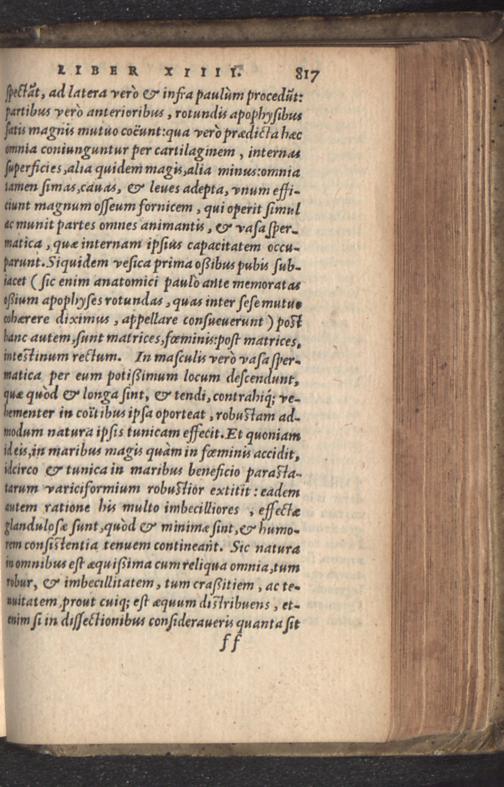 LIBER XIIII. 817
spectāt, ad latera verò & infra paulùm procedūt:
partibus verò anterioribus, rotundis apophysibus
satis magnis mutuo coëunt: qua verò prædicta hæc
omnia coniunguntur per cartilaginem, internas
superficies, alia quidem magis, alia minus: omnia
tamen simas, cauas, & leues adepta, vnum effi-
ciunt magnum osseum fornicem, qui operit simul
ac munit partes omnes animantis, & vasa sper-
matica, quæ internam ipsius capacitatem occu-
parunt. Siquidem vesica prima oßibus pubis sub-
iacet (sic enim anatomici paulò ante memoratas
oßium apophyses rotundas, quas inter sese mutuo
cohærere diximus, appellare consueuerunt) post
hanc autem, sunt matrices, fœminis: post matrices,
intestinum rectum. In masculis verò vasa sper-
matica per eum potißimum locum descendunt,
quæ quòd & longa sint, & tendi, contrahiq; ve-
hementer in coïtibus ipsa oporteat, robustam ad-
modum natura ipsis tunicam effecit. Et quoniam
id eis, in maribus magis quàm in fœminis accidit,
idcirco & tunica in maribus beneficio parasta-
tarum variciformium robustior extitit: eadem
autem ratione his multo imbecilliores, effectæ
glandulosæ sunt, quòd & minimæ sint, & humo-
rem consistentia tenuem contineant. Sic natura
in omnibus est æquißima cum reliqua omnia, tum
robur, & imbecillitatem, tum craßitiem, ac te-
nuitatem, prout cuiq; est æquum distribuens, et-
enim si in dissectionibus consideraueris quanta sit
ff